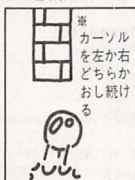 ※
カーソル
を左か右
どちらか
おし続け
る